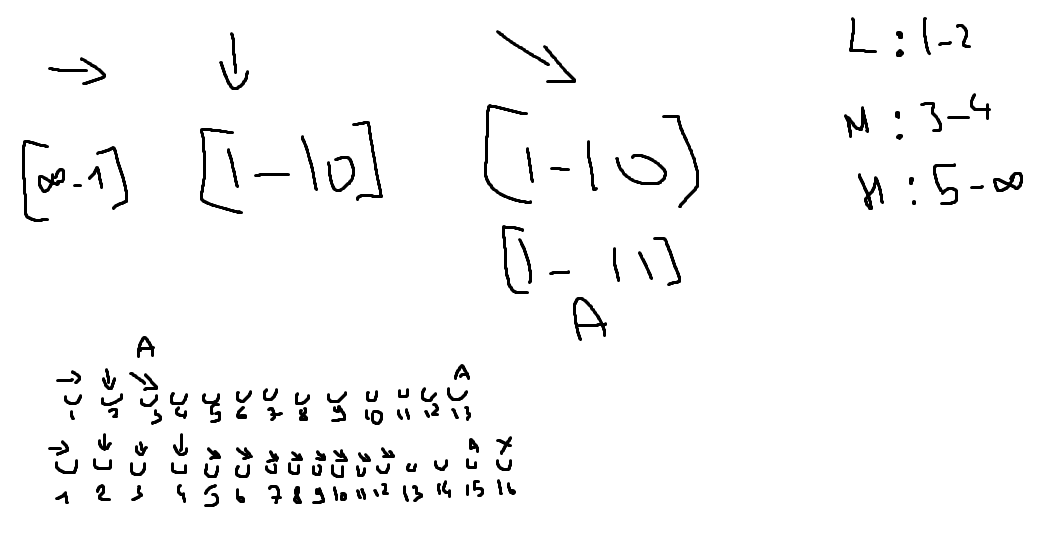 → ↓ ↘
[∞-1] [1-10] [1-10)
[1-11]
A
L : 1-2
M : 3-4
H : 5-∞
A A
→ ↓ ↘
1 2 3 4 5 6 7 8 9 10 11 12 13
→ ↓ ↓ ↓ ↘ ↘ ↘ ↘ ↘ ↘ ↘ ↘ A X
1 2 3 4 5 6 7 8 9 10 11 12 13 14 15 16